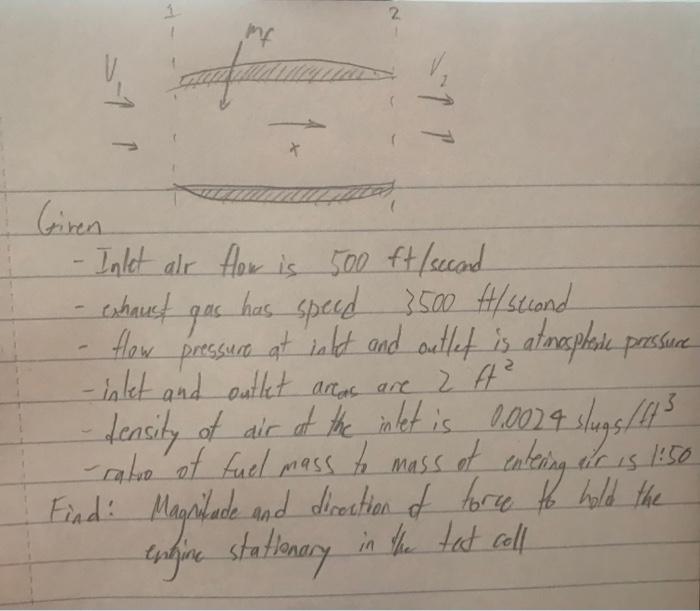 1 2
mf
V1 V2
x
Given
- Inlet air flow is 500 ft/second
- exhaust gas has speed 3500 ft/second
- flow pressure at inlet and outlet is atmospheric pressure
- inlet and outlet areas are 2 ft²
- density of air at the inlet is 0.0024 slugs/ft³
- ratio of fuel mass to mass of entering air is 1:50
Find: Magnitude and direction of force to hold the
engine stationary in the test cell